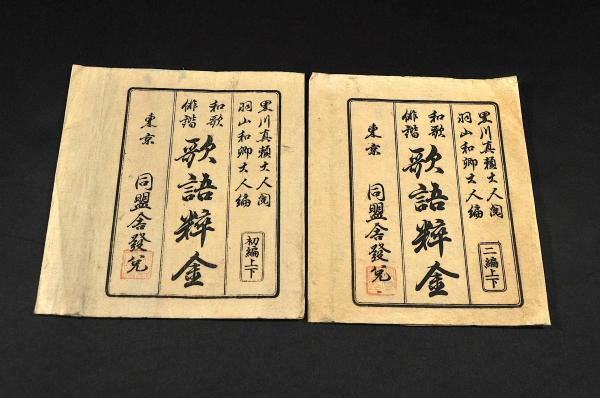 黒川真頼大人閲
羽山和卿大人編
和歌
俳諧
歌語粋金
初編上下
東京
同盟舎發兌
黒川真頼大人閲
羽山和卿大人編
和歌
俳諧
歌語粋金
二編上下
東京
同盟舎發兌